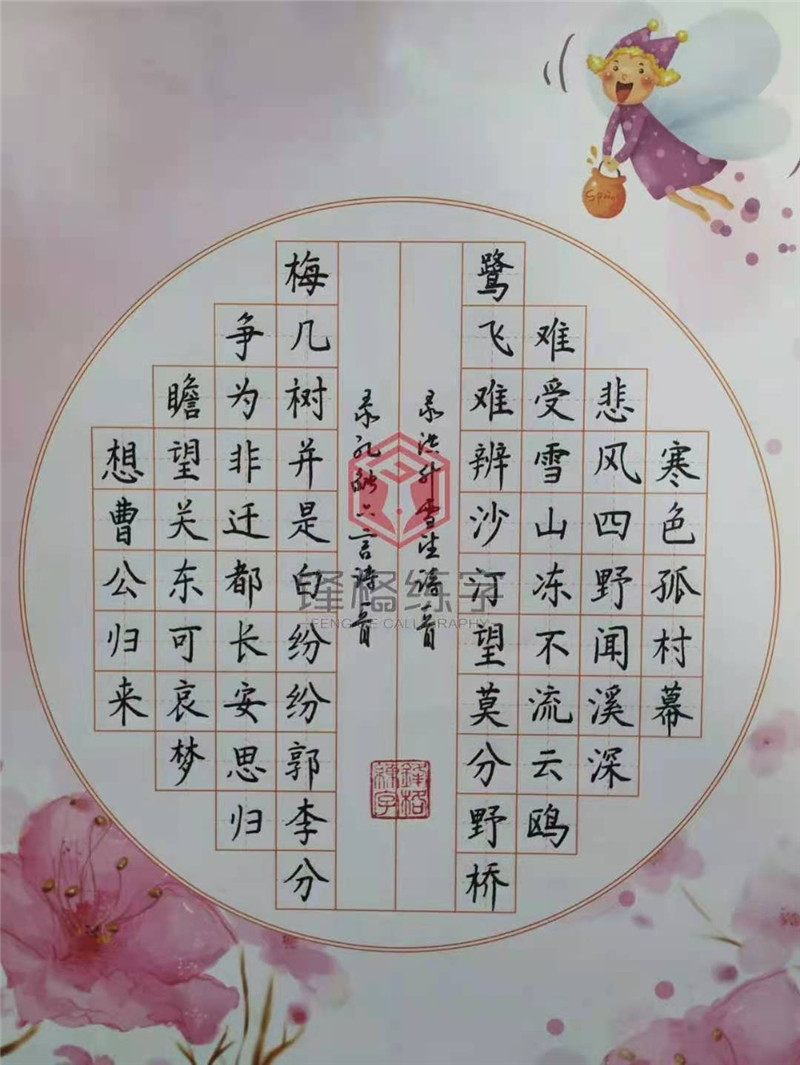 寒色孤村幕
悲风四野闻溪深
难受雪山冻不流云鸥
鹭飞难辨沙汀望莫分野桥
录洪升雪望诗一首
录孔融六言诗一首
梅几树并是白纷纷郭李分
争为非迁都长安思归
瞻望关东可哀梦
想曹公归来
鋒格
練字
锋格练字
FENG GE CALLIGRAPHY